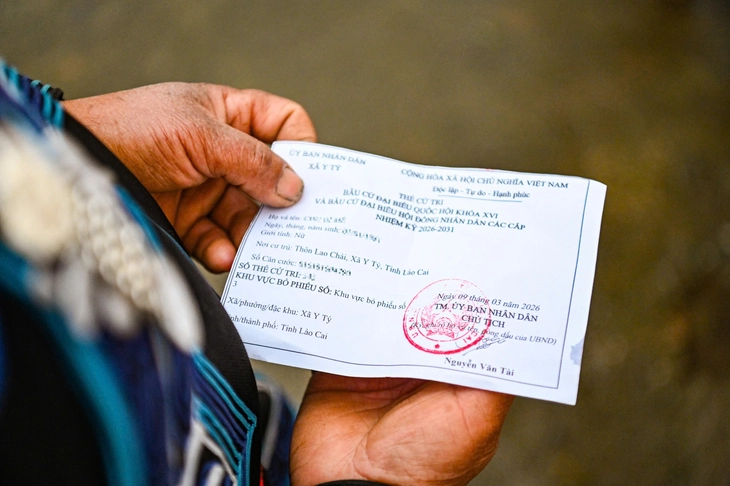 ỦY BAN NHÂN DÂN
XÃ Y TÝ
CỘNG HÒA XÃ HỘI CHỦ NGHĨA VIỆT NAM
Độc lập - Tự do - Hạnh phúc
THẺ CỬ TRI
BẦU CỬ ĐẠI BIỂU QUỐC HỘI KHÓA XVI
VÀ BẦU CỬ ĐẠI BIỂU HỘI ĐỒNG NHÂN DÂN CÁC CẤP
NHIỆM KỲ 2026-2031
Họ và tên
Ngày, tháng, năm sinh:
Giới tính: Nữ
Nơi cư trú: Thôn Lao Chải, Xã Y Tý, Tỉnh Lào Cai
Số Căn cước:
SỐ THẺ CỬ TRI:
KHU VỰC BỎ PHIẾU SỐ: Khu vực bỏ phiếu số
3
Xã/phường/đặc khu: Xã Y Tý
nh/thành phố: Tỉnh Lào Cai
Ngày 09 tháng 03 năm 2026
TM. ỦY BAN NHÂN DÂN
CHỦ TỊCH
đóng dấu của UBND)
Nguyễn Văn Tài